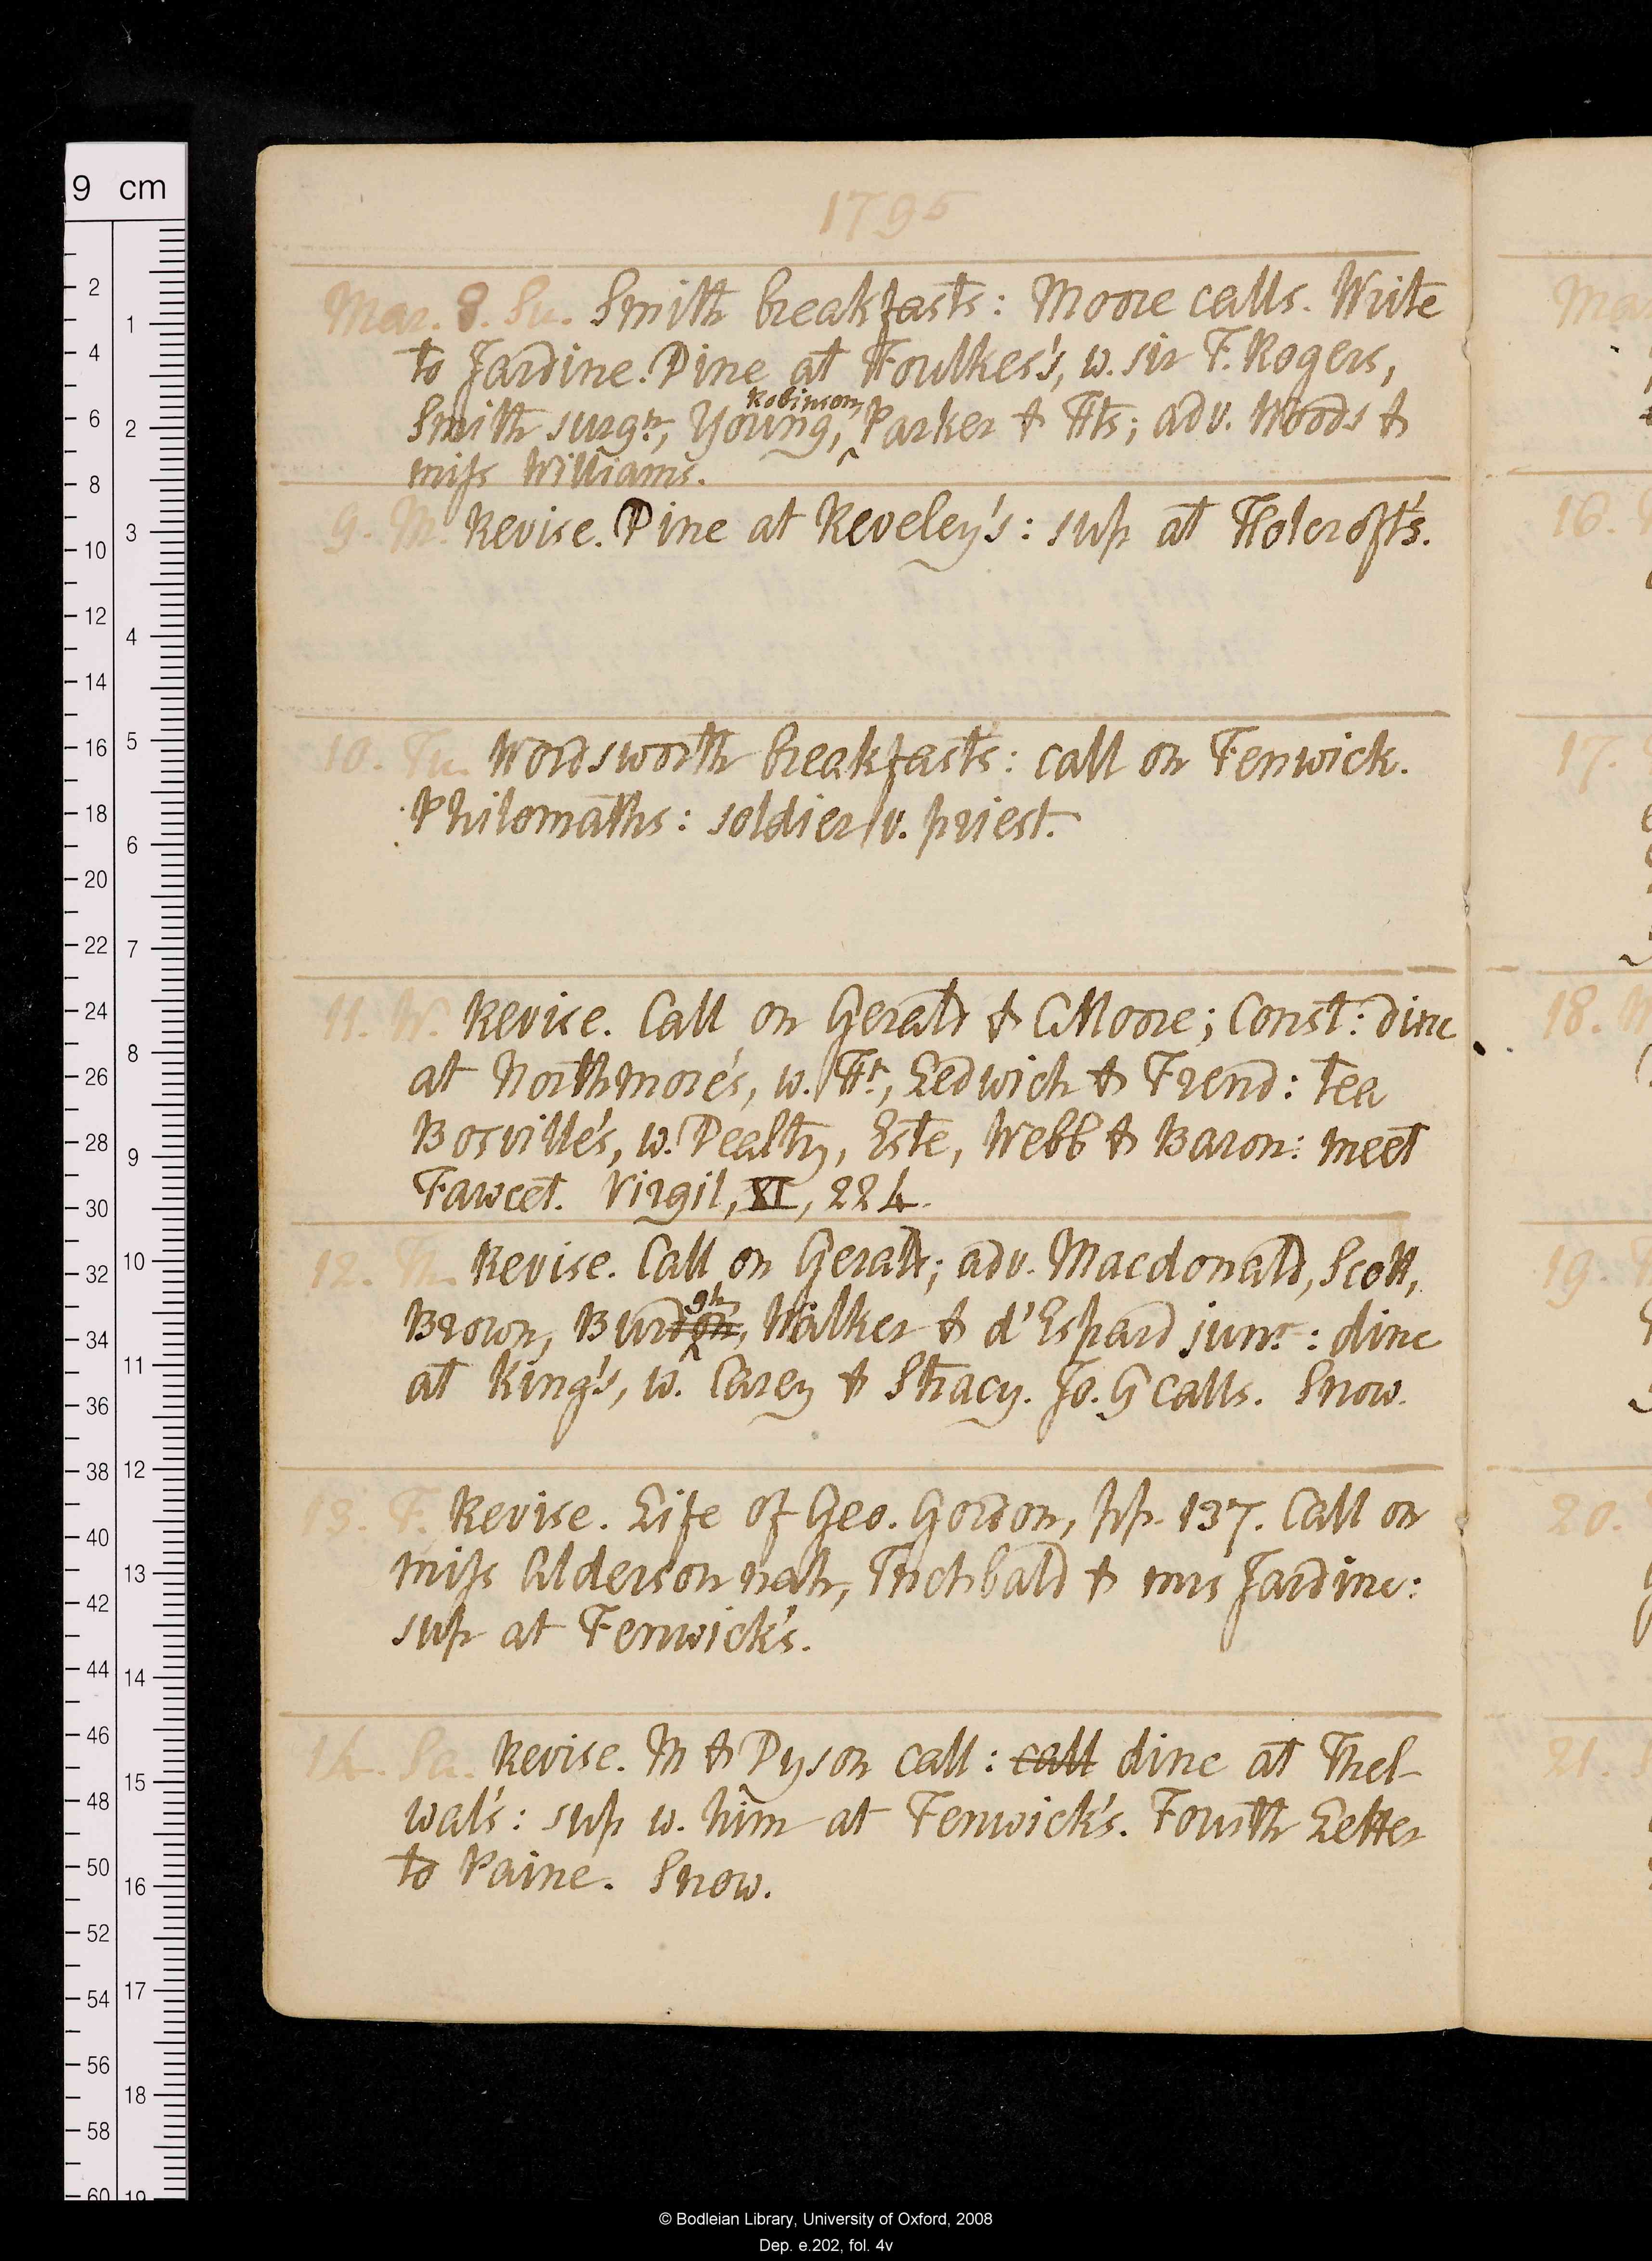 1795
Mar. 8. Su. Smith breakfasts: Moore calls. Write
to Jardine. Dine at Foulkes's, w. sir F. Rogers,
Smith surgn, Young, Robinson, Parker & Hts; adv. Woods &
miss Williams.
9. M. Revise. Dine at Reveley's: sup at Holcroft's.
10. Tu. Wordsworth breakfasts: call on Fenwick.
Philomaths: soldier v. priest.
11. W. Revise. Call on Gerald & CMoore; Const: dine
at Northmore's, w. Ht, Ledwich & Frend: tea
Bosville's, w. Dealtry, Este, Webb & Baron: meet
Fawcet. Virgil, XI, 224.
12. Th. Revise. Call on Gerald; adv. Macdonald, Scott,
Brown, Burdon gh, Walker & d'Espard junr: dine
at King's, w. Carey & Stracy. Jo. G calls. Snow.
13. F. Revise. Life of Geo. Gordon, pp. 137. Call on
miss Alderson nah, Inchbald & mrs Jardine:
sup at Fenwick's.
14. Sa. Revise. M & Dyson call: call dine at Thel-
wal's: sup w. him at Fenwick's. Fourth Letter
to Paine. Snow.
Mar
16.
17.
18.
19.
20.
21.
9 cm
2 4 6 8 10 12 14 16 18 20 22 24 26 28 30 32 34 36 38 40 42 44 46 48 50 52 54 56 58 60
1 2 3 4 5 6 7 8 9 10 11 12 13 14 15 16 17 18 19
© Bodleian Library, University of Oxford, 2008
Dep. e.202, fol. 4v